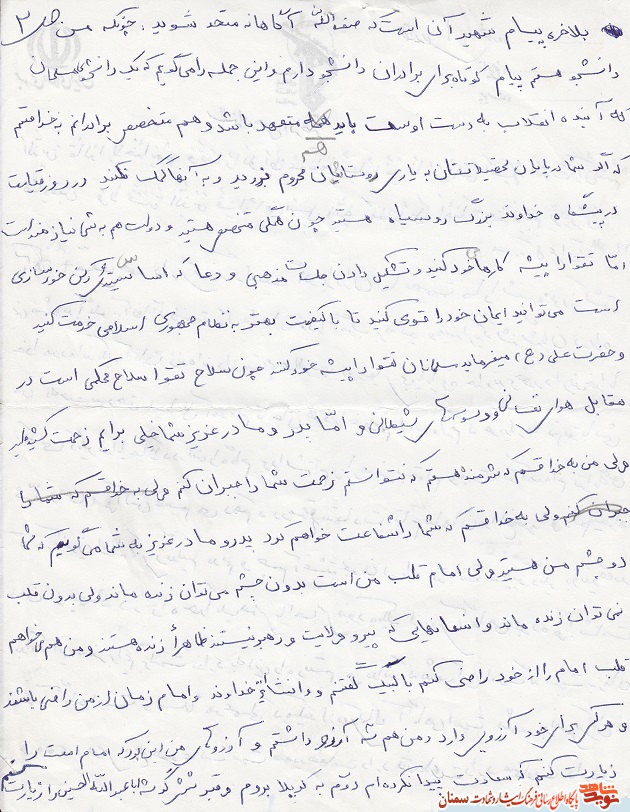 بلاخره پیام شهید آن است که صف الله آگاهانه متحد شوید. چونکه من ص ۲
دانشجو هستم پیام کوتاه برای برادران دانشجو دارم و این جمله را می گویم که یک دانشجوی مسلمان
که آینده انقلاب به دست اوست باید هم متعهد باشد و هم متخصص برادرانم به خدا قسم
که اگر شما در پایان تحصیلاتتان به یاری روستائیان محروم نروید و به آنها کمک نکنید در روز قیامت
در پیشگاه خداوند بزرگ روسیاه هستید چون همگی متخصص هستید و دولت هم به شما نیازمند است
امّا تقوا را پیشه کارها خود کنید و تشکیل دادن جلسات مذهبی و دعا که اساسیترین رکن خودسازی
است می توانید ایمان خود را قوی کنید تا با کیفیت بهتر به نظام جمهوری اسلامی خدمت کنید
و حضرت علی (ع) میفرماید مسلمانان تقوا را پیشه خود کنند چون سلاح تقوا سلاح محکمی است در
مقابل هوای نفسانی و وسوسهای شیطانی و امّا پدر و مادر عزیز شما خیلی برایم زحمت کشیده اید
ولی من به خدا قسم که شرمنده هستم که نتوانستم زحمت شما را جبران کنم ولی به خدا قسم که شما را
جبران کنم ولی به خدا قسم که شما را شفاعت خواهم کرد پدر و مادر عزیز به شما می گویم که شما
دو چشم من هستید ولی امام قلب من است بدون چشم می توان زنده ماند ولی بدون قلب
نمی توان زنده ماند و انسانهایی که پیرو ولایت و رهبر نیستند ظاهراً زنده هستند و من هم می خواهم
قلب امام را از خود راضی کنم با لبیک گفتنم و انشاءالله خداوند و امام زمان از من راضی باشند
و هر کس برای خود آرزویی دارد و من هم سه آرزو داشتم و آرزوهای من این بود که امام امت را
زیارت کنم که سعادت پیدا نکرده ام دوّم به کربلا بروم و قبر شش گوشه اباعبدالله الحسین را زیارت کنم
نوید شاهد
پایگاه اطلاع رسانی فرهنگ ایثار و شهادت سمنان